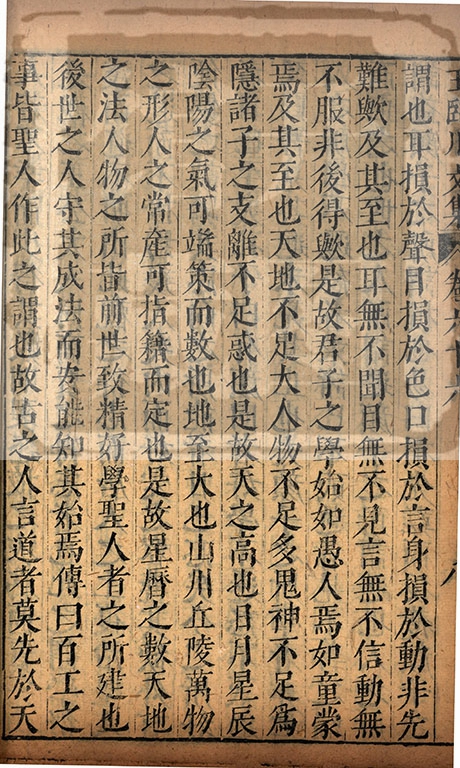 王臨川文集 卷六十六 八
謂也耳損於聲目損於色口損於言身損於動非先
難歟及其至也耳無不聞目無不見言無不信動無
不服非後得歟是故君子之學始如愚人焉如童蒙
焉及其至也天地不足大人物不足多鬼神不足為
隱諸子之支離不足惑也是故天之高也日月星辰
陰陽之氣可端策而數也地至大也山川丘陵萬物
之形人之常產可指籍而定也是故星曆之數天地
之法人物之所皆前世致精好學聖人者之所建也
後世之人守其成法而安能知其始焉傳曰百工之
事皆聖人作此之謂也故古之人言道者莫先於天